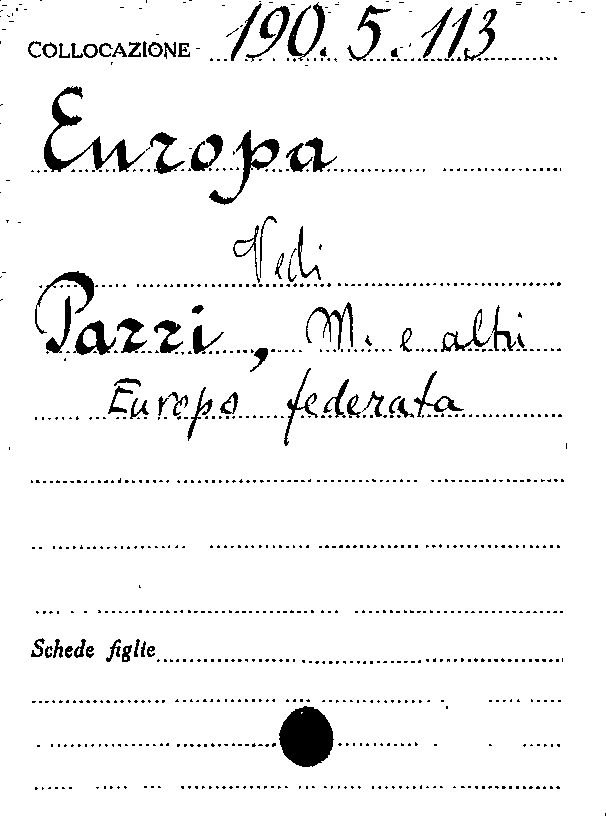 COLLOCAZIONE 190.5.113
Europa
Vedi
Parri, M. e altri
Europa federata
Schede figlie